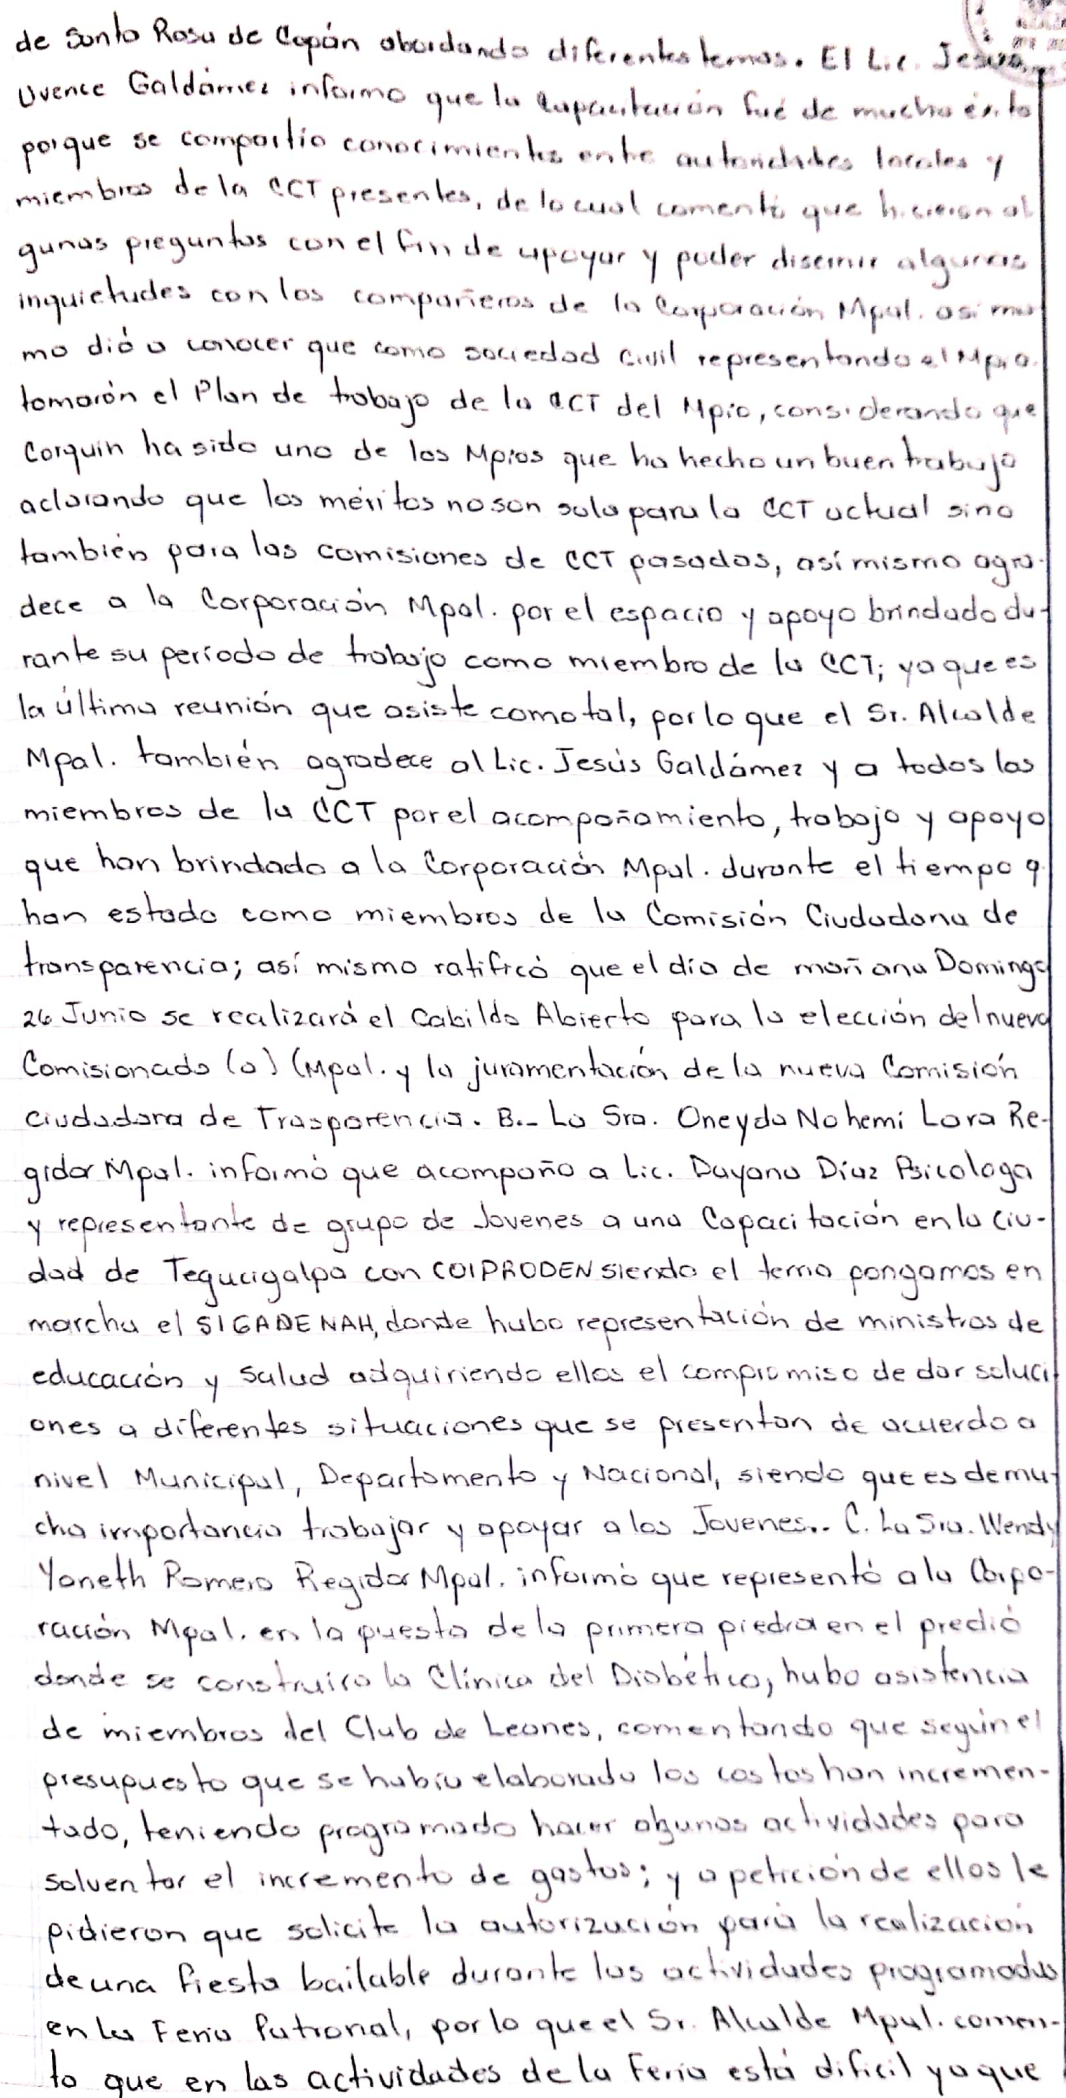 de Santa Rosa de Copán abordando diferentes temas. El Lic. Jesús
Uvence Galdámez informo que la capacitación fué de mucho éxito
porque se compartío conocimientos entre autoridades locales y
miembros de la CCT presentes, de lo cual comentó que hicieron al
gunas preguntas con el fin de apoyar y poder disernir algunas
inquietudes con los compañeros de la Corporación Mpal. asi mis
mo dió a conocer que como sociedad civil representando al Mpio.
tomarón el Plan de trabajo de la CCT del Mpio, considerando que
Corquin ha sido uno de los Mpios que ha hecho un buen trabajo
aclarando que los méritos no son solo para la CCT actual sino
también para las comisiones de CCT pasadas, así mismo agra-
dece a la Corporación Mpal. por el espacio y apoyo brindado du-
rante su período de trabajo como miembro de la CCT; ya que es
la última reunión que asiste como tal, por lo que el Sr. Alcalde
Mpal. también agradece al Lic. Jesús Galdámez y a todos los
miembros de la CCT por el acompañamiento, trabajo y apoyo
que han brindado a la Corporación Mpal. durante el tiempo q.
han estado como miembros de la Comisión Ciudadana de
transparencia; así mismo ratificó que el día de mañana Domingo
26 Junio se realizará el Cabildo Abierto para la elección del nuevo
Comisionado (a) (Mpal. y la juramentación de la nueva Comisión
Ciudadana de Trasparencia. B.- La Sra. Oneyda Nohemi Lara Re-
gidor Mpal. informó que acompaño a Lic. Dayana Díaz Psicologa
y representante de grupo de Jovenes a una Capacitación en la Ciu-
dad de Tegucigalpa con COIPRODEN siendo el tema pongamos en
marcha el SIGADENAH, donde hubo representación de ministros de
educación y Salud adquiriendo ellos el compromiso de dar soluci
ones a diferentes situaciones que se presentan de acuerdo a
nivel Municipal, Departamento y Nacional, siendo que es de mu-
cha importancia trabajar y apoyar a los Jovenes.. C. La Sra. Wendy
Yaneth Romero Regidor Mpal. informó que representó a la Corpo-
ración Mpal. en la puesta de la primera piedra en el predió
donde se construira la Clínica del Diabético, hubo asistencia
de miembros del Club de Leones, comentando que según el
presupuesto que se había elaborado los costos han incremen-
tado, teniendo programado hacer algunas actividades para
solventar el incremento de gastos; y a petición de ellos le
pidieron que solicite la autorización para la realización
de una fiesta bailable durante las actividades programadas
en la Feria Patronal, por lo que el Sr. Alcalde Mpal. comen-
to que en las actividades de la Feria está dificil ya que